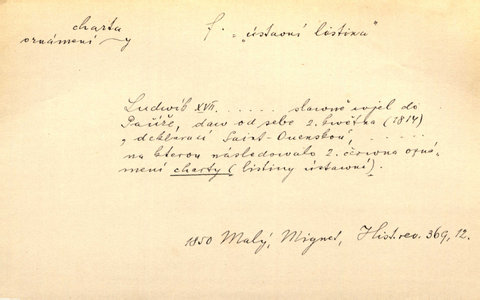 charta
oznámení ~y
f. „ústavní listina“
Ludvík XVII. . . . . . slavně vjel do
Paříže, daw od sebe 2. května (1814)
„deklaraci Saint-Ouenskou“, . . . . .
na kterou následowalo 2. června ozná-
mení charty (listiny ústawní).
1850 Malý, Mignet, Hist. rev. 369, 12.